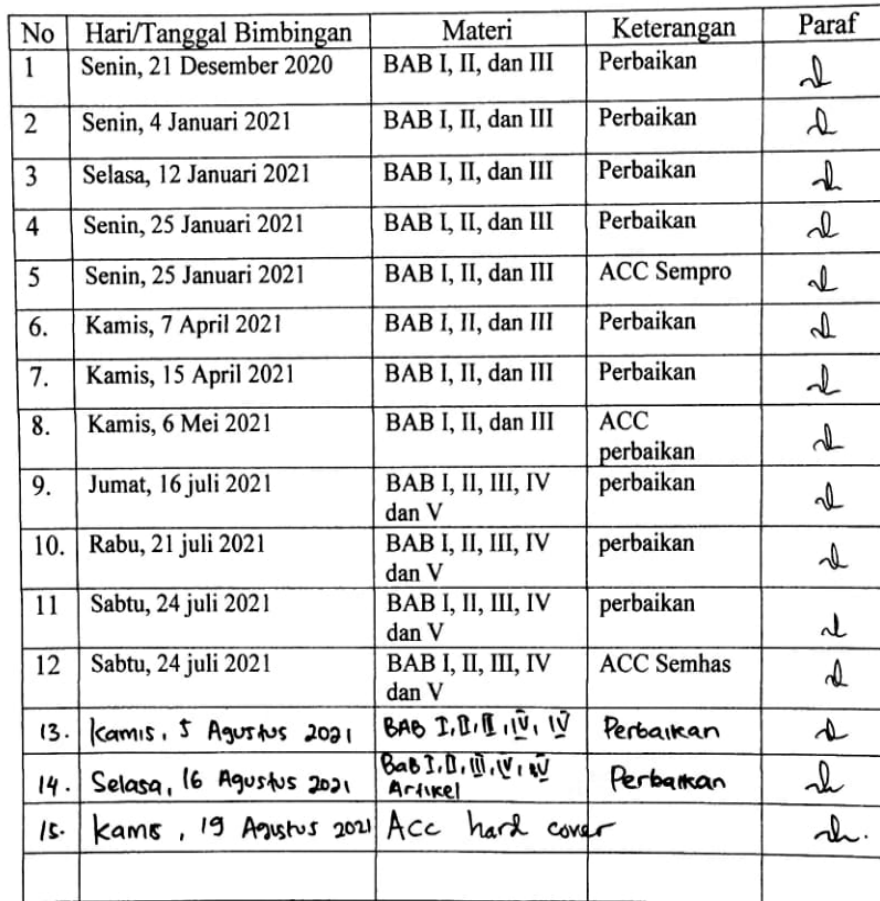 No Hari/Tanggal Bimbingan Materi Keterangan Paraf
1 Senin, 21 Desember 2020 BAB I, II, dan III Perbaikan
2 Senin, 4 Januari 2021 BAB I, II, dan III Perbaikan
3 Selasa, 12 Januari 2021 BAB I, II, dan III Perbaikan
4 Senin, 25 Januari 2021 BAB I, II, dan III Perbaikan
5 Senin, 25 Januari 2021 BAB I, II, dan III ACC Sempro
6. Kamis, 7 April 2021 BAB I, II, dan III Perbaikan
7. Kamis, 15 April 2021 BAB I, II, dan III Perbaikan
8. Kamis, 6 Mei 2021 BAB I, II, dan III ACC
perbaikan
9. Jumat, 16 juli 2021 BAB I, II, III, IV perbaikan
dan V
10. Rabu, 21 juli 2021 BAB I, II, III, IV perbaikan
dan V
11 Sabtu, 24 juli 2021 BAB I, II, III, IV perbaikan
dan V
12 Sabtu, 24 juli 2021 BAB I, II, III, IV ACC Semhas
dan V
13. Kamis, 5 Agustus 2021 BAB I, II, II, IV, IV Perbaikan
14. Selasa, 16 Agustus 2021 BaB I, II, III, IV, Perbaikan
Artikel
15. Kamis, 19 Agustus 2021 Acc hard cover